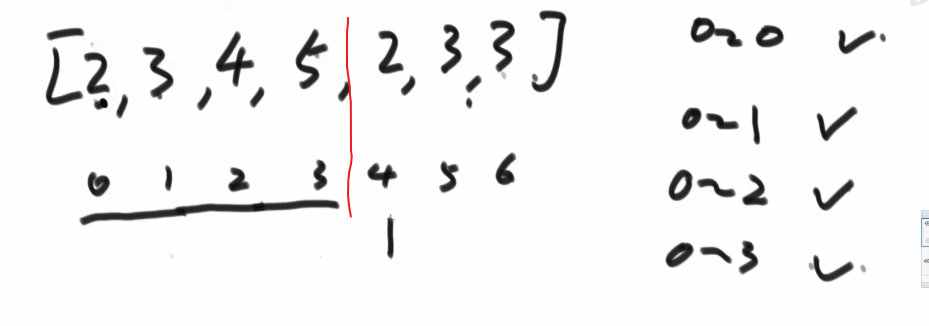 [2, 3, 4, 5, 2, 3, 3]
0 1 2 3 4 5 6
1
0~0 ✓
0~1 ✓
0~2 ✓
0~3 ✓